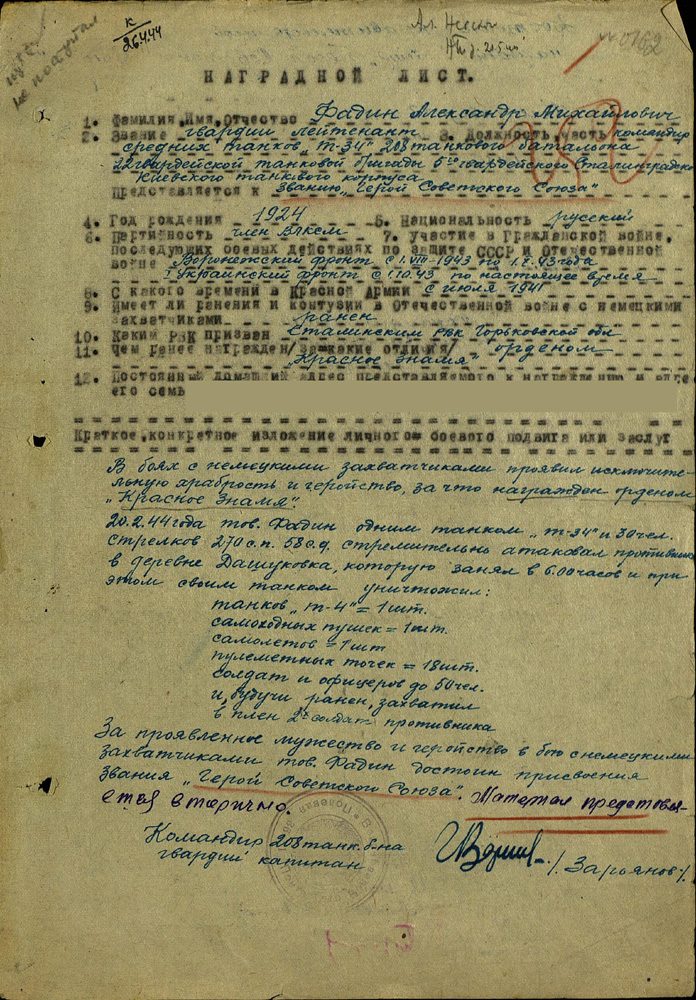 К
26.4.44
Ал. Невский
не поступал
0162
НАГРАДНОЙ ЛИСТ.
1. Фамилия, Имя, Отчество Фадин Александр Михайлович
2. Звание гвардии лейтенант 3. Должность, часть командир
средних танков „Т-34" 208 танкового батальона
22 гвардейской танковой бригады 5го гвардейского Сталинградско
Киевского танкового корпуса
Представляется к званию „Герой Советского Союза"
4. Год рождения 1924 5. Национальность русский
6. Партийность член ВЛКСМ 7. участие в Гражданской войне,
последующих боевых действиях по защите СССР и Отечественной
войне Воронежский фронт с 1.VIII-1943 по 1.X.43 года
I Украинский фронт с 1.10.43 по настоящее время
8. С какого времени в Красной Армии с июля 1941
9. Имеет ли ранения и контузии в Отечественной войне с немецкими
захватчиками ранен
10. Каким РВК призван Сталинским РВК Горьковской обл
11. Чем ранее награжден/за какие отличия/ орденом
„Красное Знамя"
12. Постоянный домашний адрес представляемого к награждению и адрес
его семь
Краткое, конкретное изложение личного боевого подвига или заслуг
В боях с немецкими захватчиками проявил исключите-
льную храбрость и геройство, за что награжден орденом
„Красное Знамя".
20.2.44 года тов. Фадин одним танком „Т-34" и 30 чел.
стрелков 270 с.п. 58 с.д. стремительно атаковал противника
в деревне Дашуковка, которую занял в 6.00 часов и при
этом своим танком уничтожил:
танков „Т-4" = 1 шт.
самоходных пушек = 1 шт.
самолетов = 1 шт
пулеметных точек = 18 шт.
солдат и офицеров до 50 чел.
и, будучи ранен, захватил
в плен 2х солдат противника
За проявленное мужество и геройство в бою с немецкими
захватчиками тов. Фадин достоин присвоения
звания „Герой Советского Союза". Материал представля-
ется вторично.
Командир 208 танк. б-на
гвардии капитан /Зароянов/.